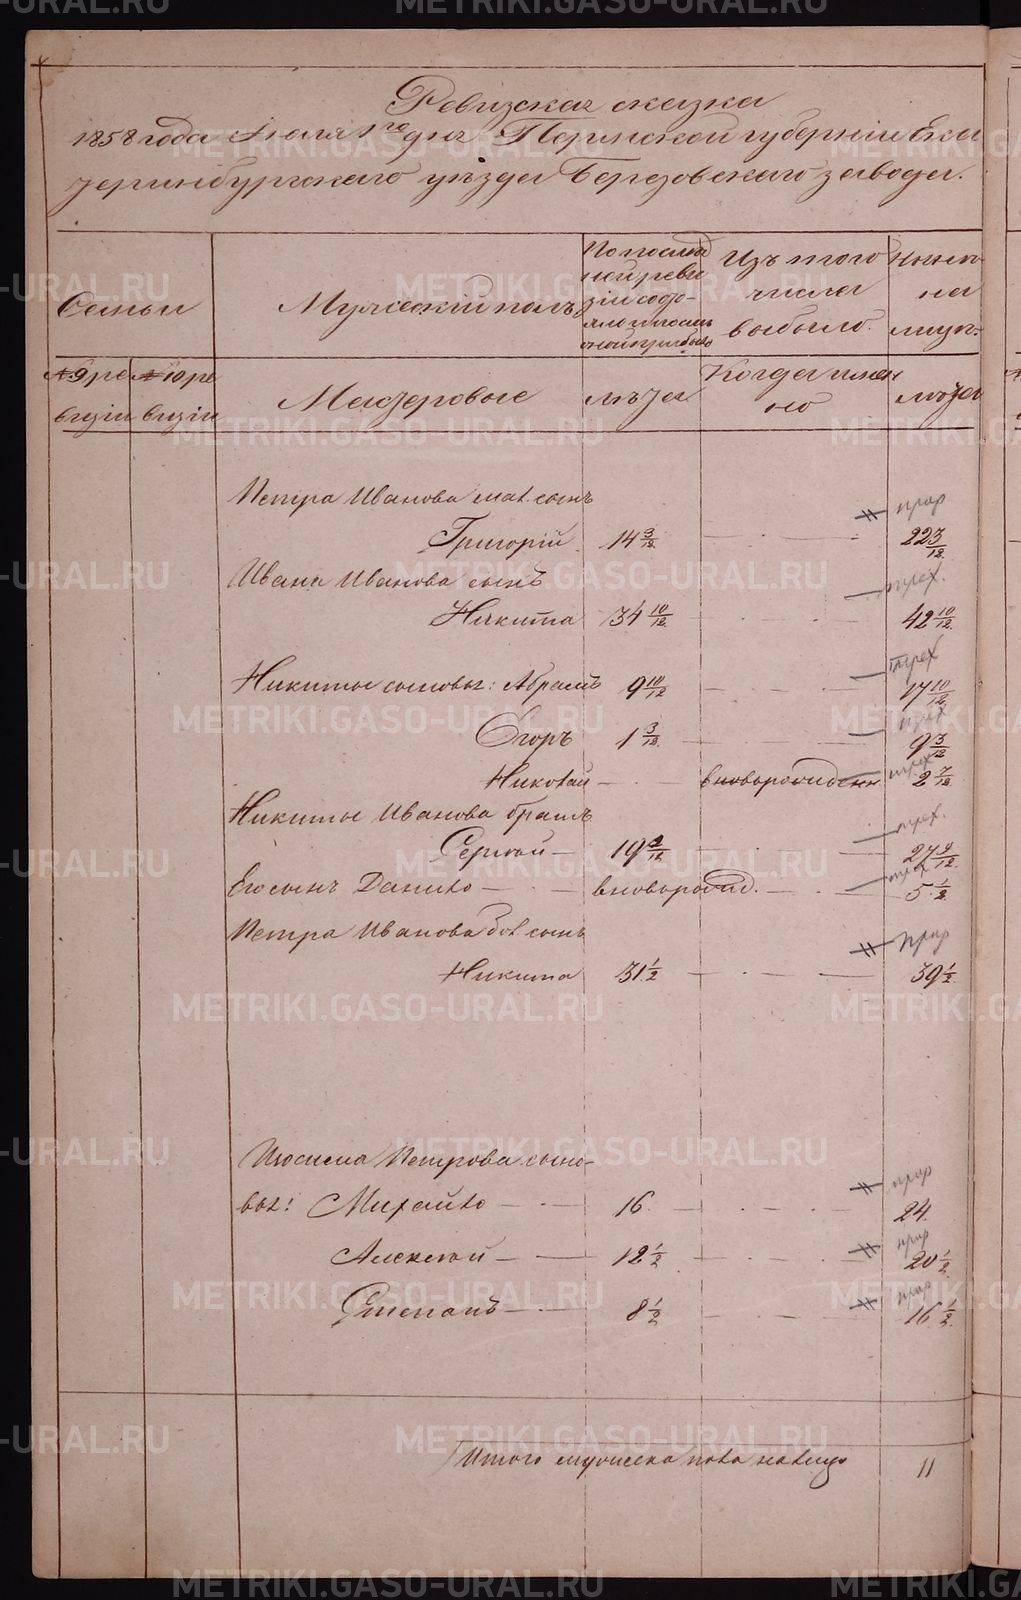 Ревизская сказка
1858 года Июля 1го дня Пермской губернии Ека
теринбургскаго уезда Березовскаго завода.
Семьи
Мужеский полъ
По послед
ней ревизiи состо-
яло и после
оной прибыло
Изъ того
числа
выбыло.
Ныне
на
лицо.
№ 9 ре
визiи
№ 10 ре
визiи
Мастеровые
лѣта
Когда имен
но
лѣта
Петра Иванова мал. сынъ
Григорiй 14 3/12 22 3/12
Ивана Иванова сынъ
Никита 34 10/12 42 10/12
Никиты сыновья: Абрамъ 9 10/12 17 10/12
Егоръ 1 3/12 9 3/12
Николай вноворожденн 2 7/12
Никиты Иванова братъ
Сергей 19 9/12 27 9/12
Его сынъ Данило вноворожд. 5 1/2
Петра Иванова бол сынъ
Никита 31 1/2 39 1/2
Петрова сыно-
вья: Михайло 16. 24.
Алексей 12 1/2 20 1/2
Степанъ 8 1/2 16 1/2
Итого мужеска пола налицо 11
METRIKI.GASO-URAL.RU